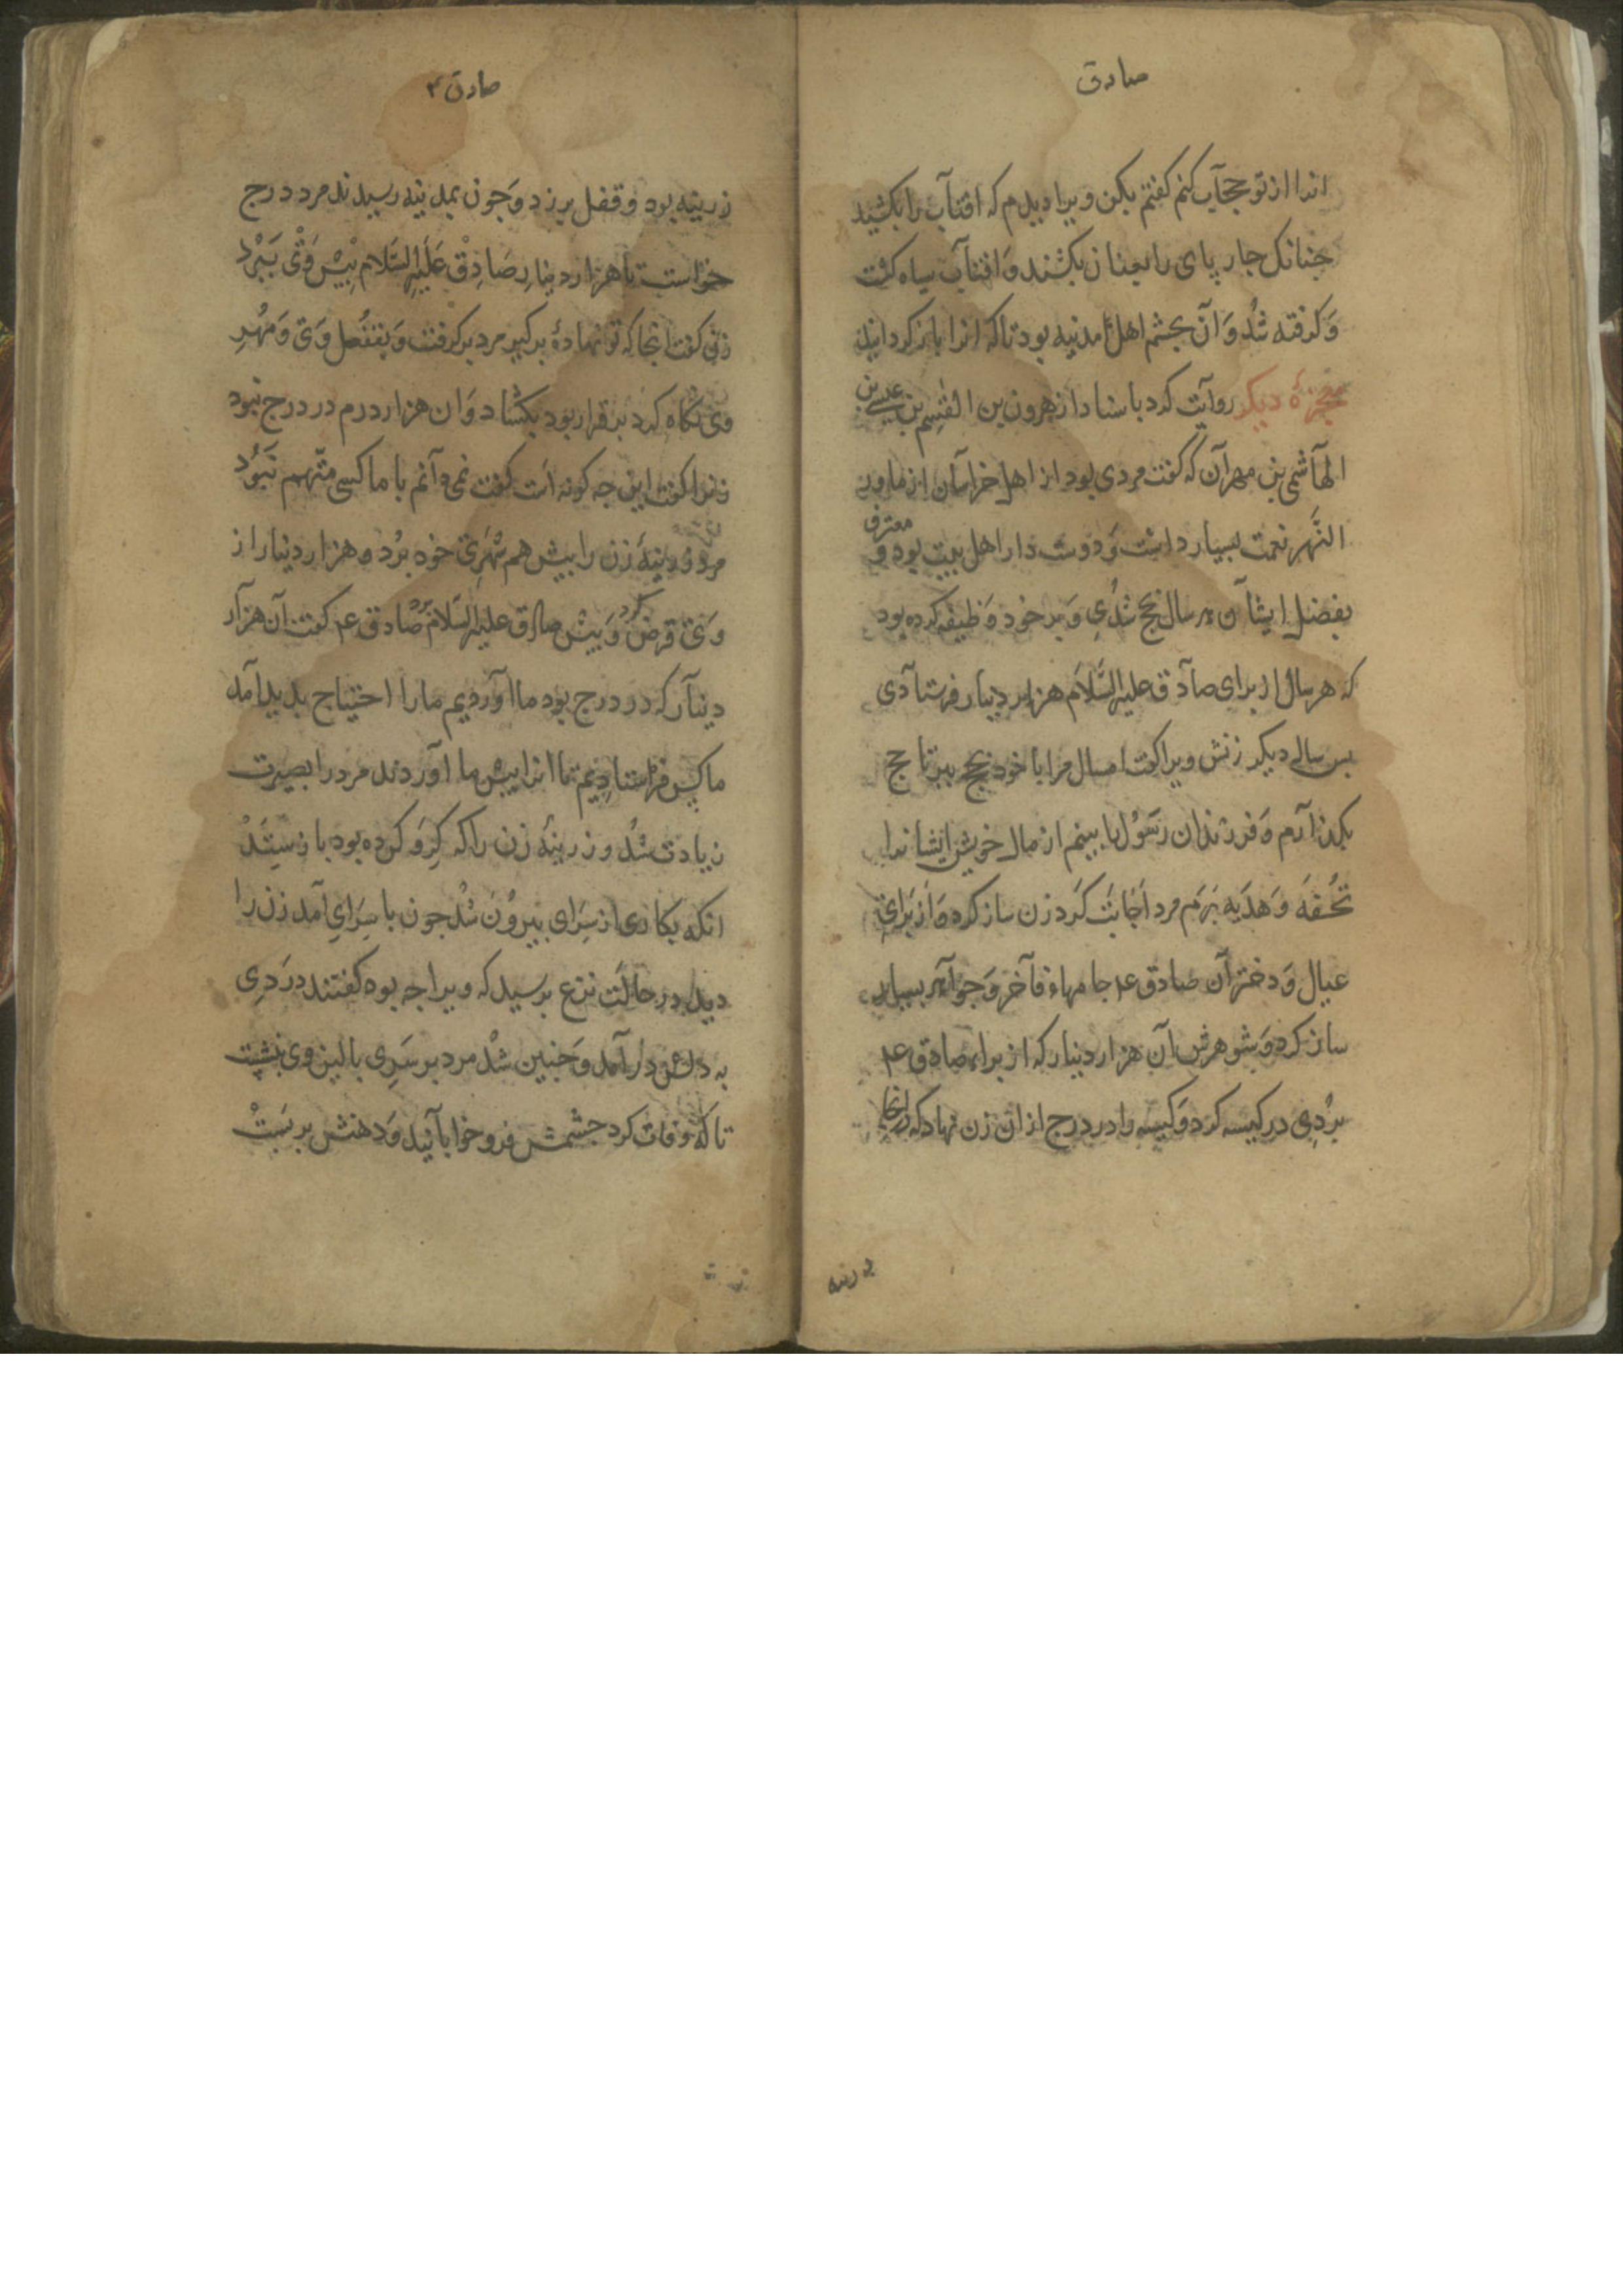 صادق
انرا از تو حجآب کنم کفتم بکن ویرا دیدم که افتآب را بکشید
جنانک جار پای را بعنان بکشند وَ افتآب سیاه کشت
وَ کرفته شُد وَ آن بجشم اهل مدنیه بود تا که انرا باز کردانید
معجزهٔ دیکر روآیت کرد باسناد از هرون بن القٰسِم بن عیسی بن
الهآشمی بن مهرآن که کفت مردی بود از اهل خراسان از ماور
النَّهر نعمت بسیار داشت وَ دوست دار اهل بیت بود و معترف
بفضل ایشآن هر سال بحج شدُی وَ بر خود وَظیفه کرده بود
که هر سال از برای صآدق علیه السَّلام هزار دینار فرستآدی
بس سالی دیکر زنش ویرا کفت امسال مرا با خود بحج ببر تا حج
بکذآرم وَ فرزندان رسَوُل را ببینم از مال خویش ایشانرا
تُحفَه وَ هدَیه بَرَم مرد اجَابَت کَرد زن ساز کرد وَ از بَرَایِ
عیال وَ دخترآن صادق ع جامهاء فآخر وَ جوآهر بسیار
ساز کرد وَ شوهرش آن هزار دینار که از براء صادق ع
بُردِی در کیسه کرد وَ کیسه را در درج ازان زن نهاد که درانجا
زرینه
صادق ۴
زرینه بود و قفل برزد وَ جون بمدینه رسیدند مرد درج
خواست تا هزار دینارِ صَادِقْ عَلَیهِ السَّلام بیش وَیْ بَبَرْد
زن کفت انجا که تو نهادهٔ برکیر مرد برکرفت وَ بقفُل وَی وَ مُهُرِ
وی نکاه کرد برقرار بود بکشاد وَ ان هزار درم در درج نبود
زنرا کفت این جه کونه است کفت نمی دآنم با ما کسی متّهم نَبَوُد
مرد زرینهٔ زن را بیش هم شهَریِ خود برُد و هزار دینار از
وَی قرض کرد وَ بیش صادق علیه السَّلام برد صادق ع کفت آن هزآر
دینآر که در درج بود ما اوردیم مارا احتیاج بدید آمد
ما کس فرستادیم تا انرا بیش ما آوردند مرد را بصیرت
زیادت شُد و زرینهٔ زن را که کِروَ کرده بود باز سِتَدْ
انکه بکاری از سَرَای بیروُن شُد جون با سَرَایِ آمد زن را
دید در حالَت نزع برسید که ویرا جه بود کفتند درَدِی
به دلش دَر آمد وَ جنین شُد مرد بر سَرِی بالین وی بنشست
تا که وفات کرد جشمش فرو خوابآنید وَ دهنش بر بَسَتْ